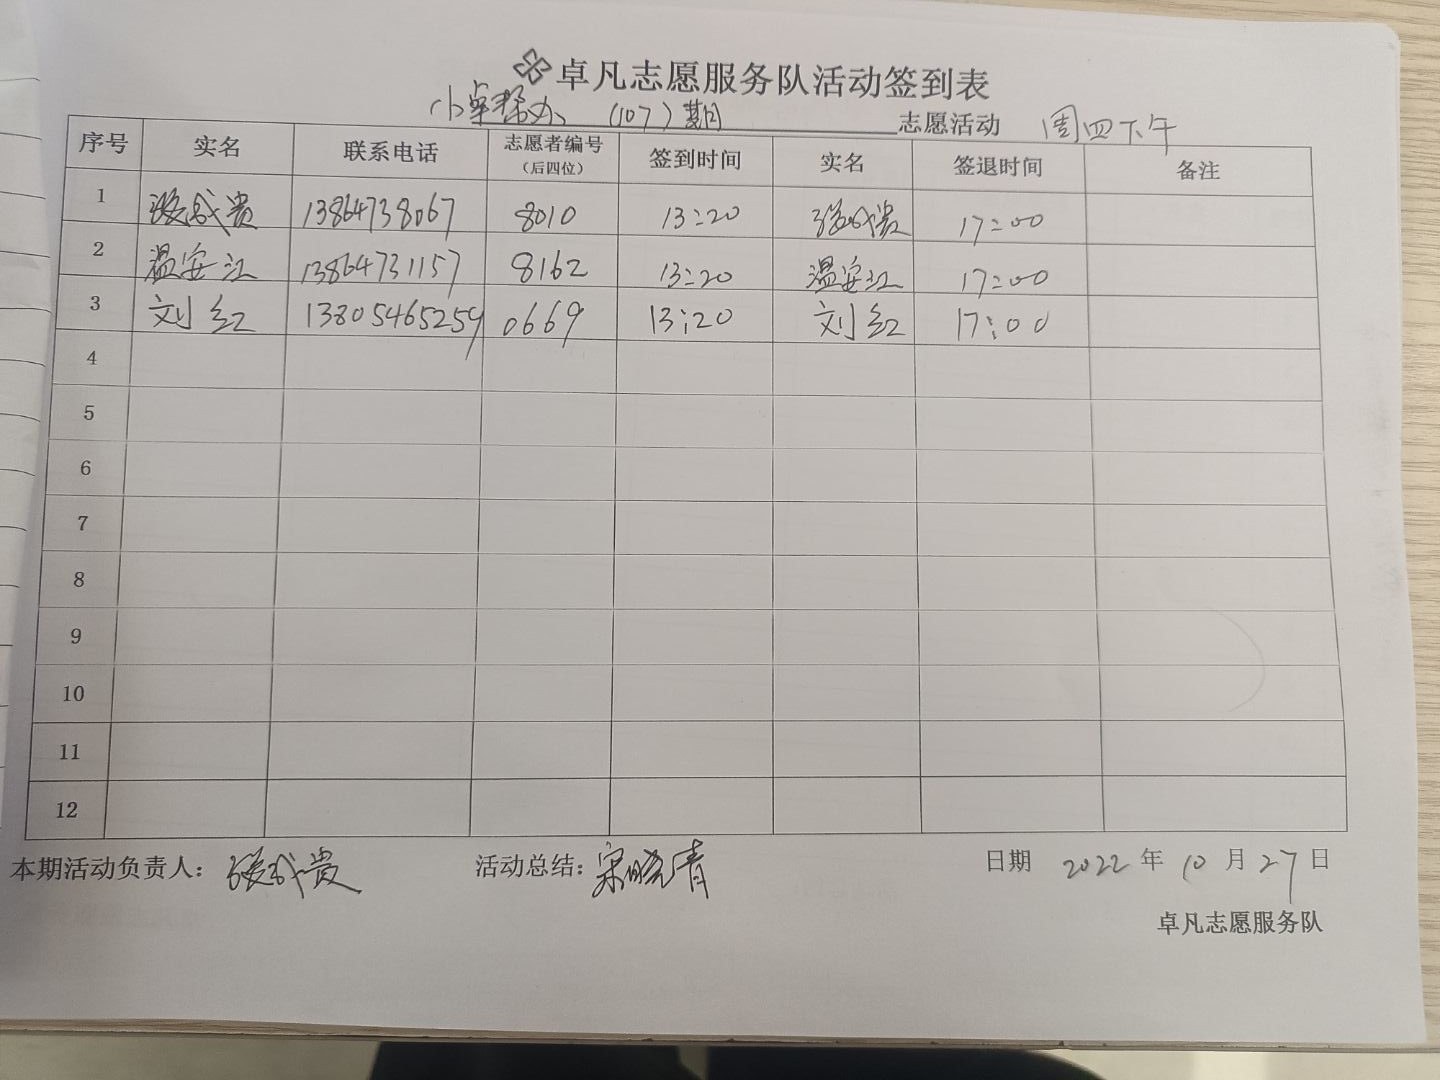 卓凡志愿服务队活动签到表
小卓帮办 (107)期 志愿活动 周四下午
序号 实名 联系电话 志愿者编号（后四位） 签到时间 实名 签退时间 备注
1 张成贵 13864738067 8010 13:20 张成贵 17:00
2 温安江 13864731157 8162 13:20 温安江 17:00
3 刘红 13805465259 0669 13:20 刘红 17:00
4
5
6
7
8
9
10
11
12
本期活动负责人：张成贵 活动总结：宋晓青 日期 2022 年 10 月 27 日
卓凡志愿服务队